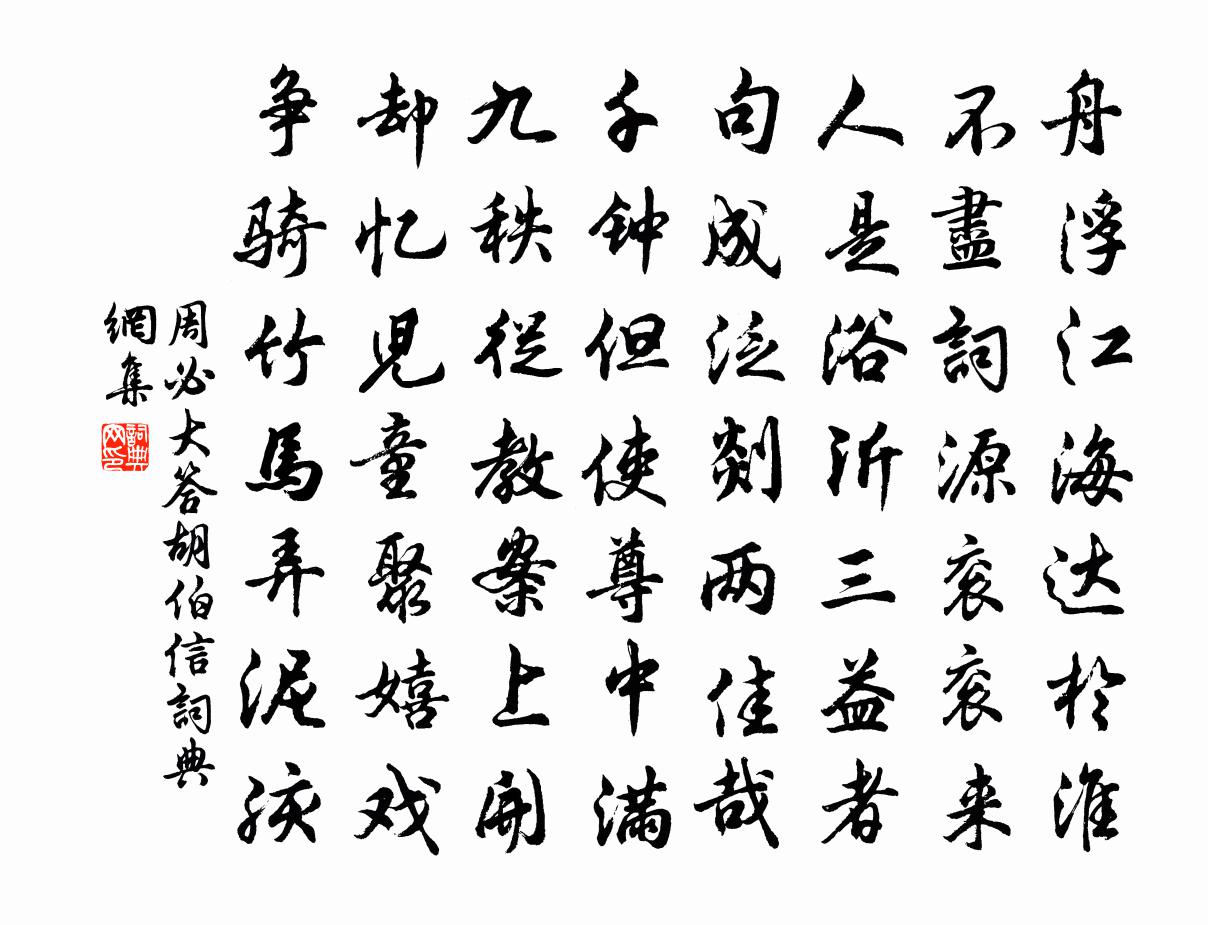 舟浮江海达於淮
不盡詞源衮衮来
人是浴沂三益者
句成泛剡两佳哉
千钟但使尊中满
九秩從教案上開
却忆児童聚嬉戏
争骑竹馬弄泥孩
周必大答胡伯信詞典
網集
詞典网印